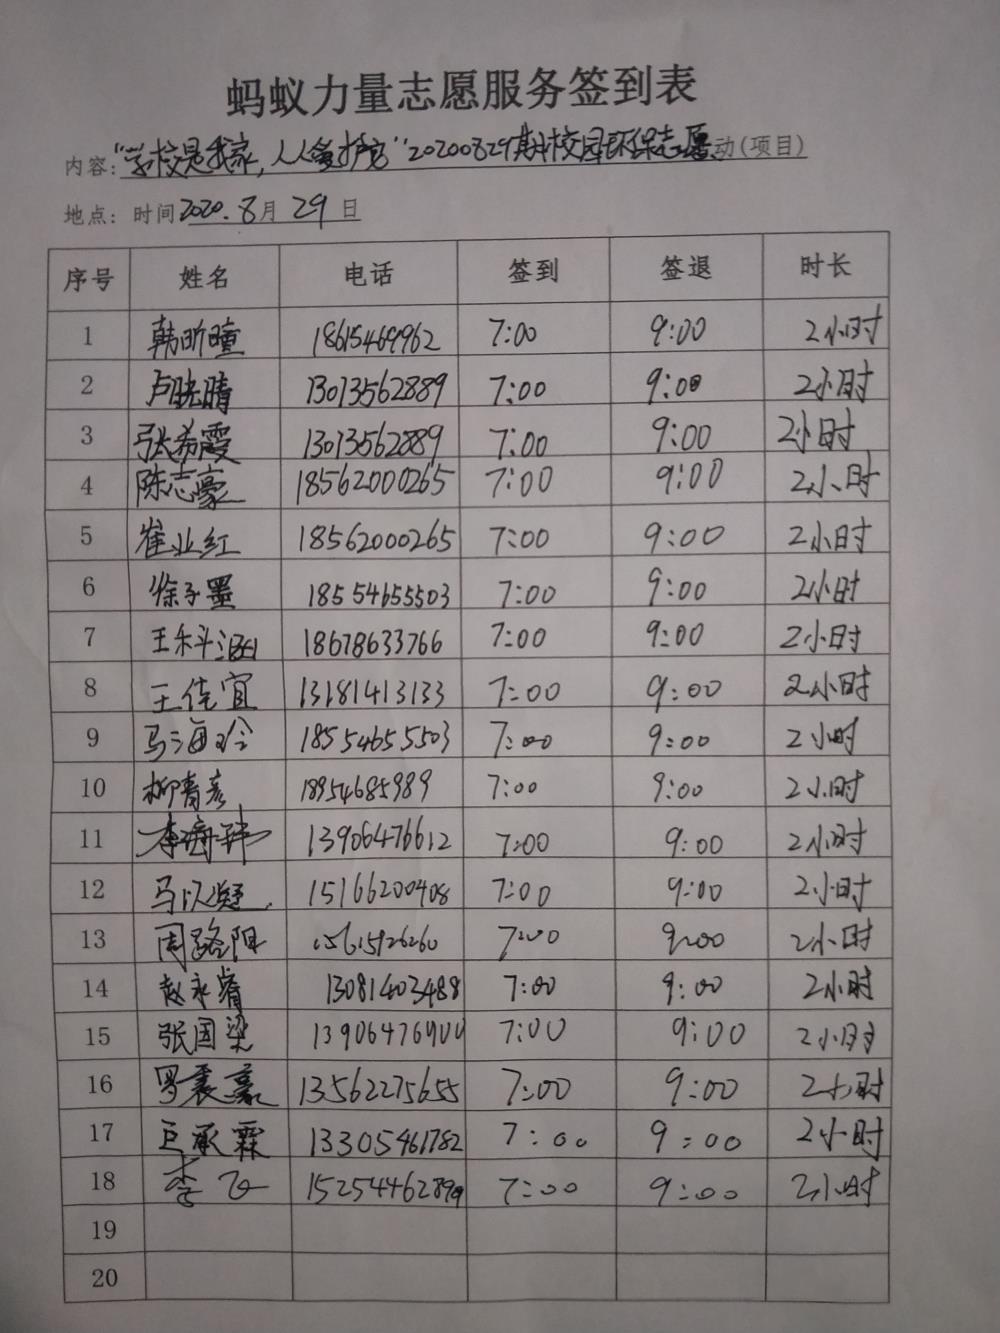 蚂蚁力量志愿服务签到表
内容："学校是我家，人人爱护它"20200829期校园环保志愿动(项目)
地点：时间2020.8月29日
序号 姓名 电话 签到 签退 时长
1 韩昕曈 18615469962 7:00 9:00 2小时
2 卢晓晴 13013562889 7:00 9:00 2小时
3 张希霞 13013562889 7:00 9:00 2小时
4 陈志豪 18562000265 7:00 9:00 2小时
5 崔业红 18562000265 7:00 9:00 2小时
6 徐子墨 18554655503 7:00 9:00 2小时
7 18678633766 7:00 9:00 2小时
8 王佳宜 13181413133 7:00 9:00 2小时
9 马海玲 18554655503 7:00 9:00 2小时
10 柳青彦 18954685989 7:00 9:00 2小时
11 13906476612 7:00 9:00 2小时
12 马以凝 15166200408 7:00 9:00 2小时
13 周路阳 15615926260 7:00 9:00 2小时
14 赵永睿 13081403488 7:00 9:00 2小时
15 张国梁 7:00 9:00 2小时
16 13562275655 7:00 9:00 2小时
17 巨承霖 13305461782 7:00 9:00 2小时
18 李飞 7:00 9:00 2小时
19
20